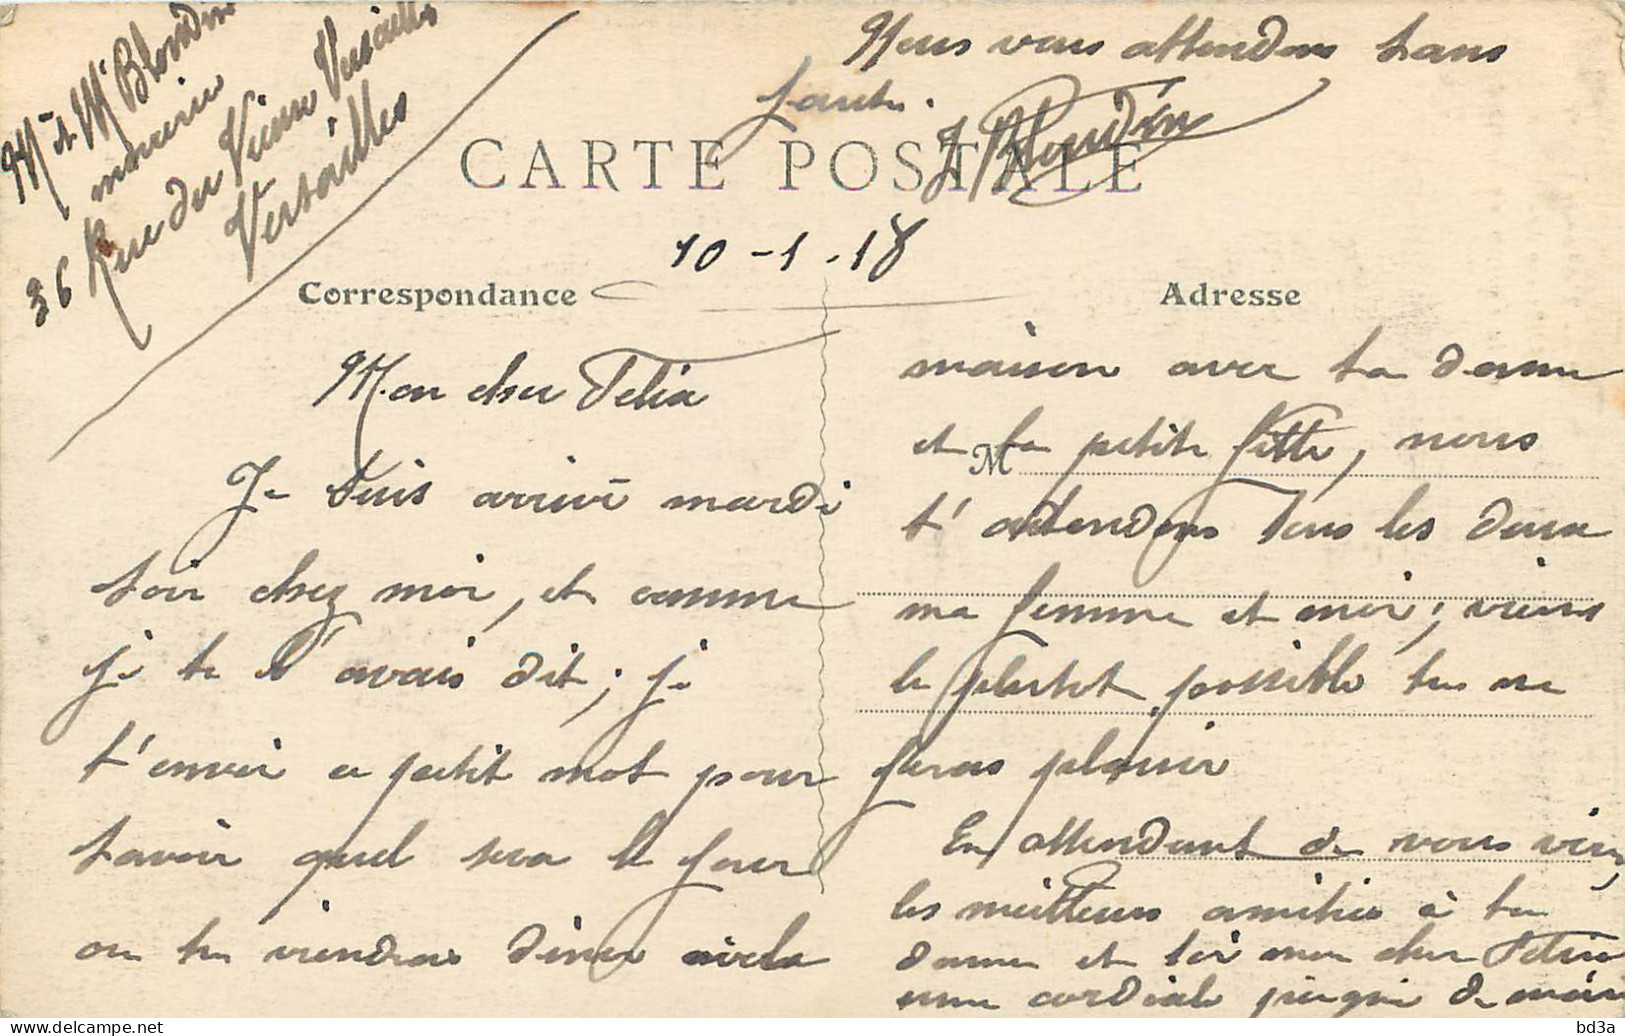 Mr et Me Blondin
36 Rue du Vieux Versailles
Versailles
Nous vous attendons sans
faute.
J Blondin
CARTE POSTALE
10-1-18
Correspondance
Adresse
Mon cher Felix
Je suis arrivé mardi
soir chez moi, et comme
je te l'avais dit; je
t'envoie ce petit mot pour
savoir quel sera le jour
ou tu viendras diner a la
maison avec ta dame
et ta petite fille, nous
M
t'attendons tous les deux
ma femme et moi; viens
le plutot possible tu me
feras plaisir
En attendant de vous voir,
les meilleures amitiés à ta
dame et toi mon cher Felix
une cordiale poignée de main
bd3a